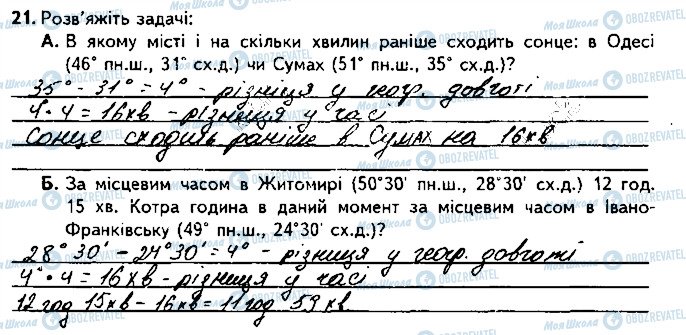 21. Розв'яжіть задачі:
А. В якому місті і на скільки хвилин раніше сходить сонце: в Одесі
(46° пн.ш., 31° сх.д.) чи Сумах (51° пн.ш., 35° сх.д.)?
35° - 31° = 4° - різниця у геогр. довготі
4 · 4 = 16хв - різниця у часі
Сонце сходить раніше в Сумах на 16хв
Б. За місцевим часом в Житомирі (50°30' пн.ш., 28°30' сх.д.) 12 год.
15 хв. Котра година в даний момент за місцевим часом в Івано-
Франківську (49° пн.ш., 24°30' сх.д.)?
28° 30' - 24° 30' = 4° - різниця у геогр. довготі
4° · 4 = 16хв - різниця у часі
12 год 15хв - 16хв = 11 год 59 хв.